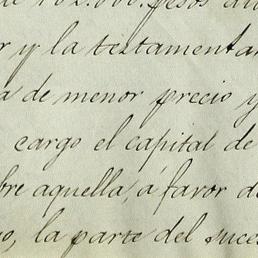 de 102.000. pesos
r y la testamentar
a de menor precio y
cargo el capital de
bre aquella, á favor d
o, la parte del suces